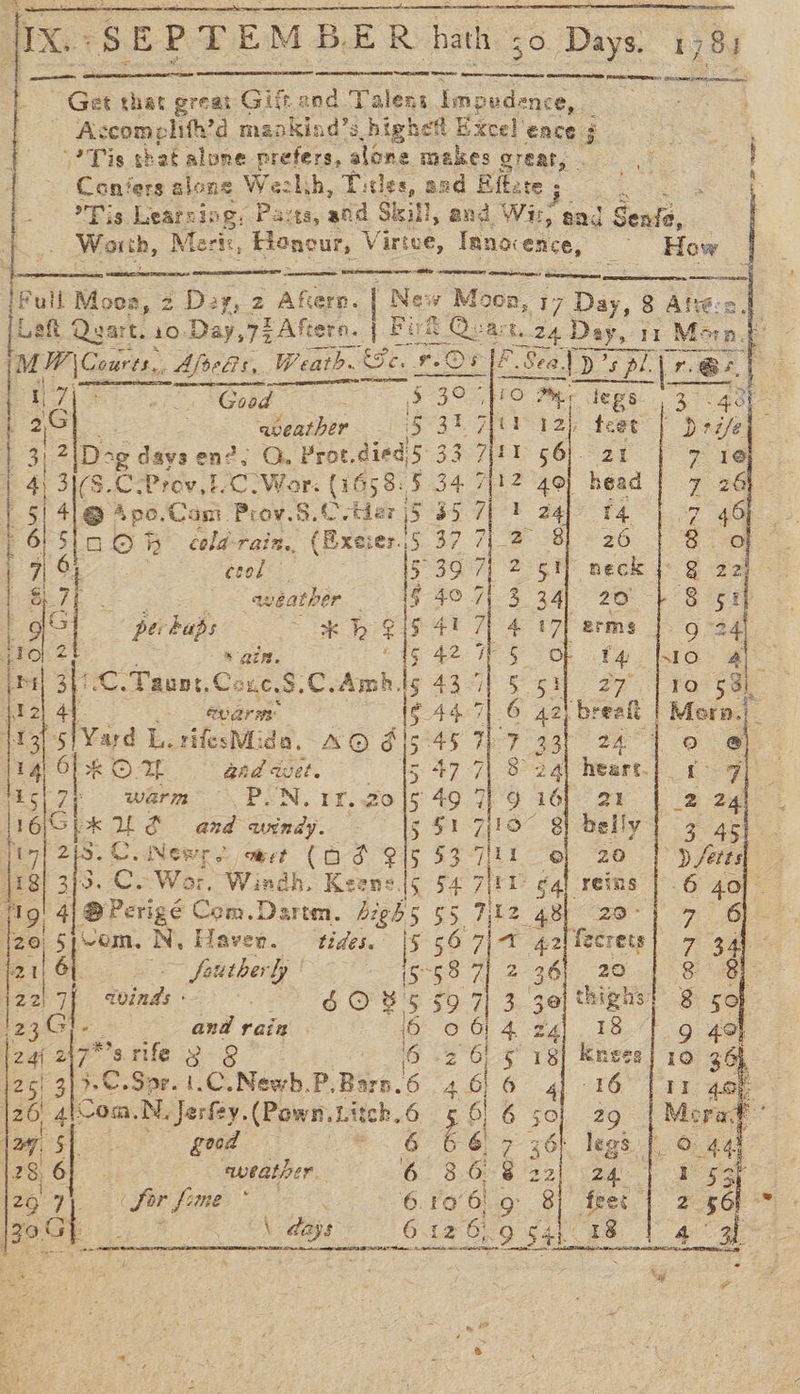 IX. SEPTEMBER hath 30 Days. 1781
Get that great Gift and Talent Impudence,
Accomplish'd mankind's highest Excellence ;
'Tis that alone prefers, alone makes great,
Confers alone Wealth, Titles, and Estate ;
'Tis Learning, Parts, and Skill, and Wit, and Sense,
Worth, Merit, Honour, Virtue, Innocence, How
Full Moon, 2 Day, 2 Aftern. | New Moon, 17 Day, 8 Aftern.
Last Quart. 10 Day, 7½ Aftern. | First Quart. 24 Day, 11 Morn.
M W Courts, Aspects, Weath. &c. r. ☉ s F. Sea ☽'s pl. r. s.
1 7 Good 5 30 7 10 legs 3 48
2 G weather 5 31 7 11 12 feet ☽ rise
3 2 Dog days end; O. Prot. died 5 33 7 11 56 21 7 10
4 3 (S.C. Prov, I.C. Wor. (1658. 5 34 7 12 40 head 7 26
5 4 Apo. Com. Prov. S.C. 5 35 7 1 24 14 7 46
6 5 □ ☉ ♄ cold rain. (Exeter. 5 37 7 2 8 26 8 0
7 6 cool 5 39 7 2 51 neck 8 22
8 7 weather 5 40 7 3 34 20 8 51
9 G perhaps * ♄ ♀ 5 41 7 4 17 arms 9 24
10 2 rain. 5 42 7 5 0 14 10 4
11 3 I.C. Taunt. Conc. S.C. Amh. 5 43 7 5 51 27 10 58
12 4 warm 5 44 7 6 42 breast Morn.
13 5 Yard L. rises Midn. △ ☉ ♂ 5 45 7 7 33 24 0 0
14 6 * ☉ ♃ and wet. 5 47 7 8 24 heart. 1 7
15 7 warm P. N. 11. 20 5 49 7 9 16 21 2 24
16 G * ♃ ♂ and windy. 5 51 7 10 8 belly 3 45
17 2 S. C. Newp. wet (□ ♂ ♀ 5 53 7 11 0 20 ☽ sets
18 3 S. C. Wor. Windh. Keene. 5 54 7 11 54 reins 6 40
19 4 Perigé Com. Dartm. high 5 55 7 12 48 20 7 6
20 5 Com. N. Haven. tides. 5 56 7 1 42 secrets 7 34
21 6 southerly 5 58 7 2 36 20 8 8
22 7 winds ☌ ☉ ☿ 5 59 7 3 30 thighs 8 50
23 G and rain 6 0 6 4 24 18 9 40
24 2 7*'s rise 8 8 6 2 6 5 18 knees 10 36
25 3 S.C. Spr. I.C. Newb. P. Barn. 6 4 6 6 4 16 11 40
26 4 Com. N. Jersey. (Pown. Litch. 6 5 6 6 50 29 Morn
27 5 good 6 6 6 7 36 legs 0 44
28 6 weather 6 8 6 8 22 24 1 53
29 7 for some 6 10 6 9 8 feet 2 56
30 G days 6 12 6 9 54 18 4 3